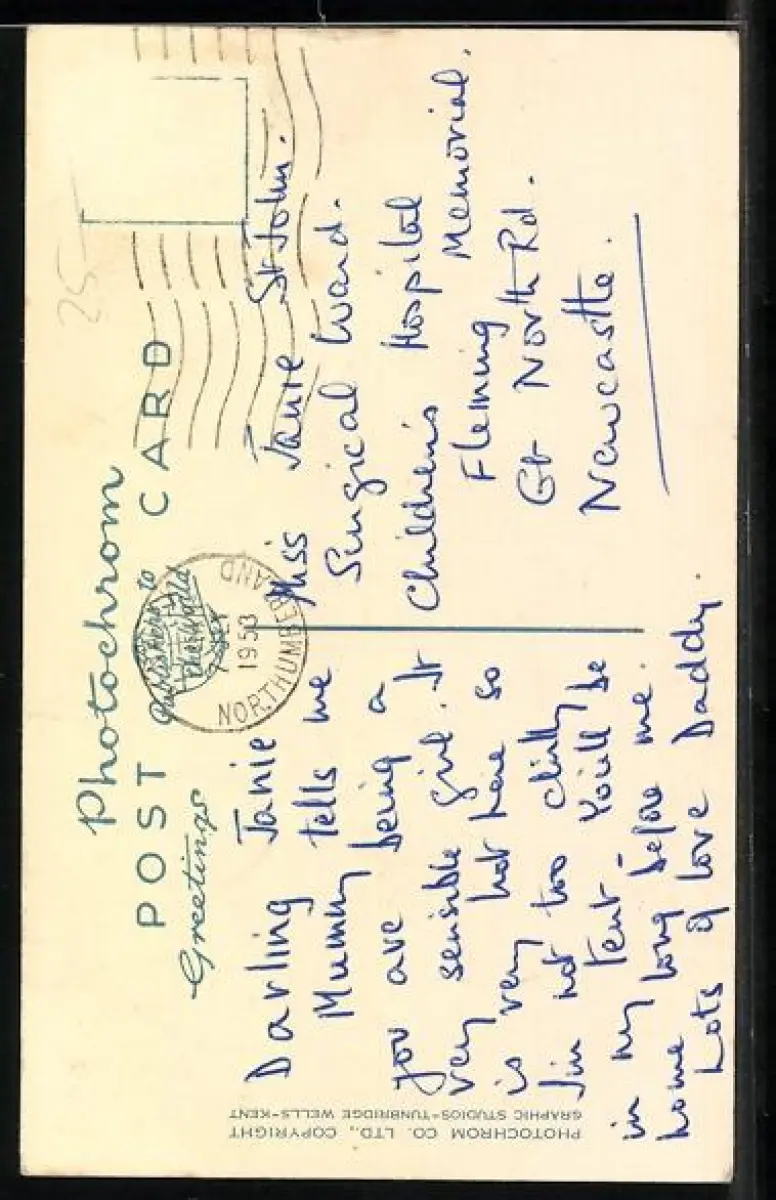 Photochrom
POST CARD
Greetings
Darling Janie
Mummy tells me
you are being a
very sensible girl. It
is very hot here so
I'm not too chilly
in my tent - You'll be
home long before me.
Lots of love Daddy.
Miss Janie St John.
Surgical Ward.
Children's Hospital
Fleming Memorial.
Gt North Rd.
Newcastle.
NORTHUMBERLAND
1953
25
PHOTOCHROM CO. LTD., COPYRIGHT
GRAPHIC STUDIOS-TUNBRIDGE WELLS-KENT